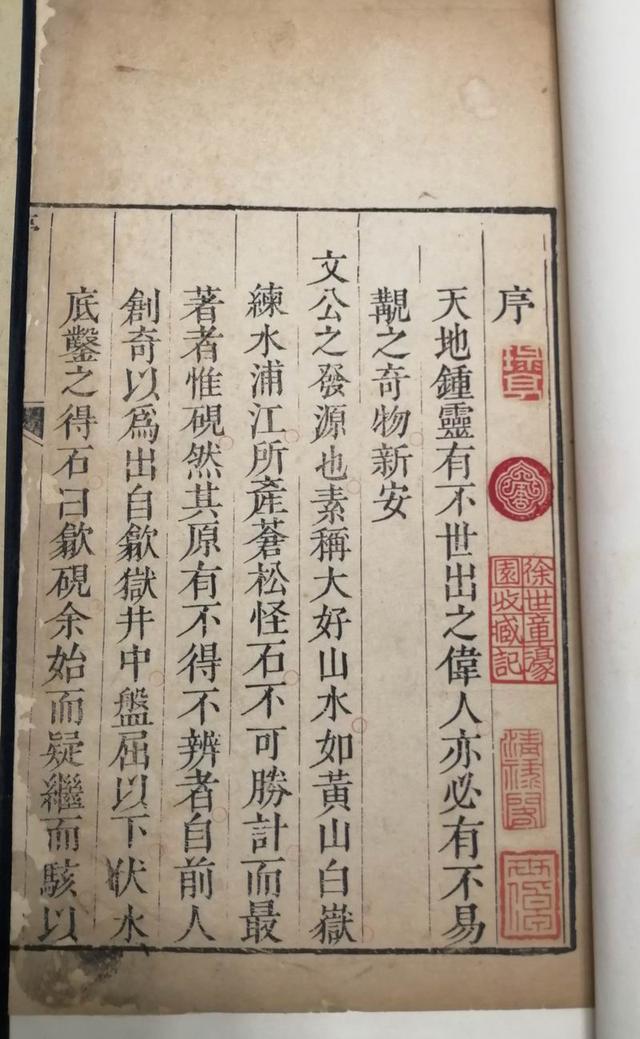 序
天地鍾靈有不世出之偉人亦必有不易
覯之奇物新安
文公之發源也素稱大好山水如黃山白嶽
練水浦江所產蒼松怪石不可勝計而最
著者惟硯然其原有不得不辨者自前人
創奇以爲出自歙獄井中盤屈以下伏水
底鑿之得石曰歙硯余始而疑繼而駭以
徐世章濠
園收藏記